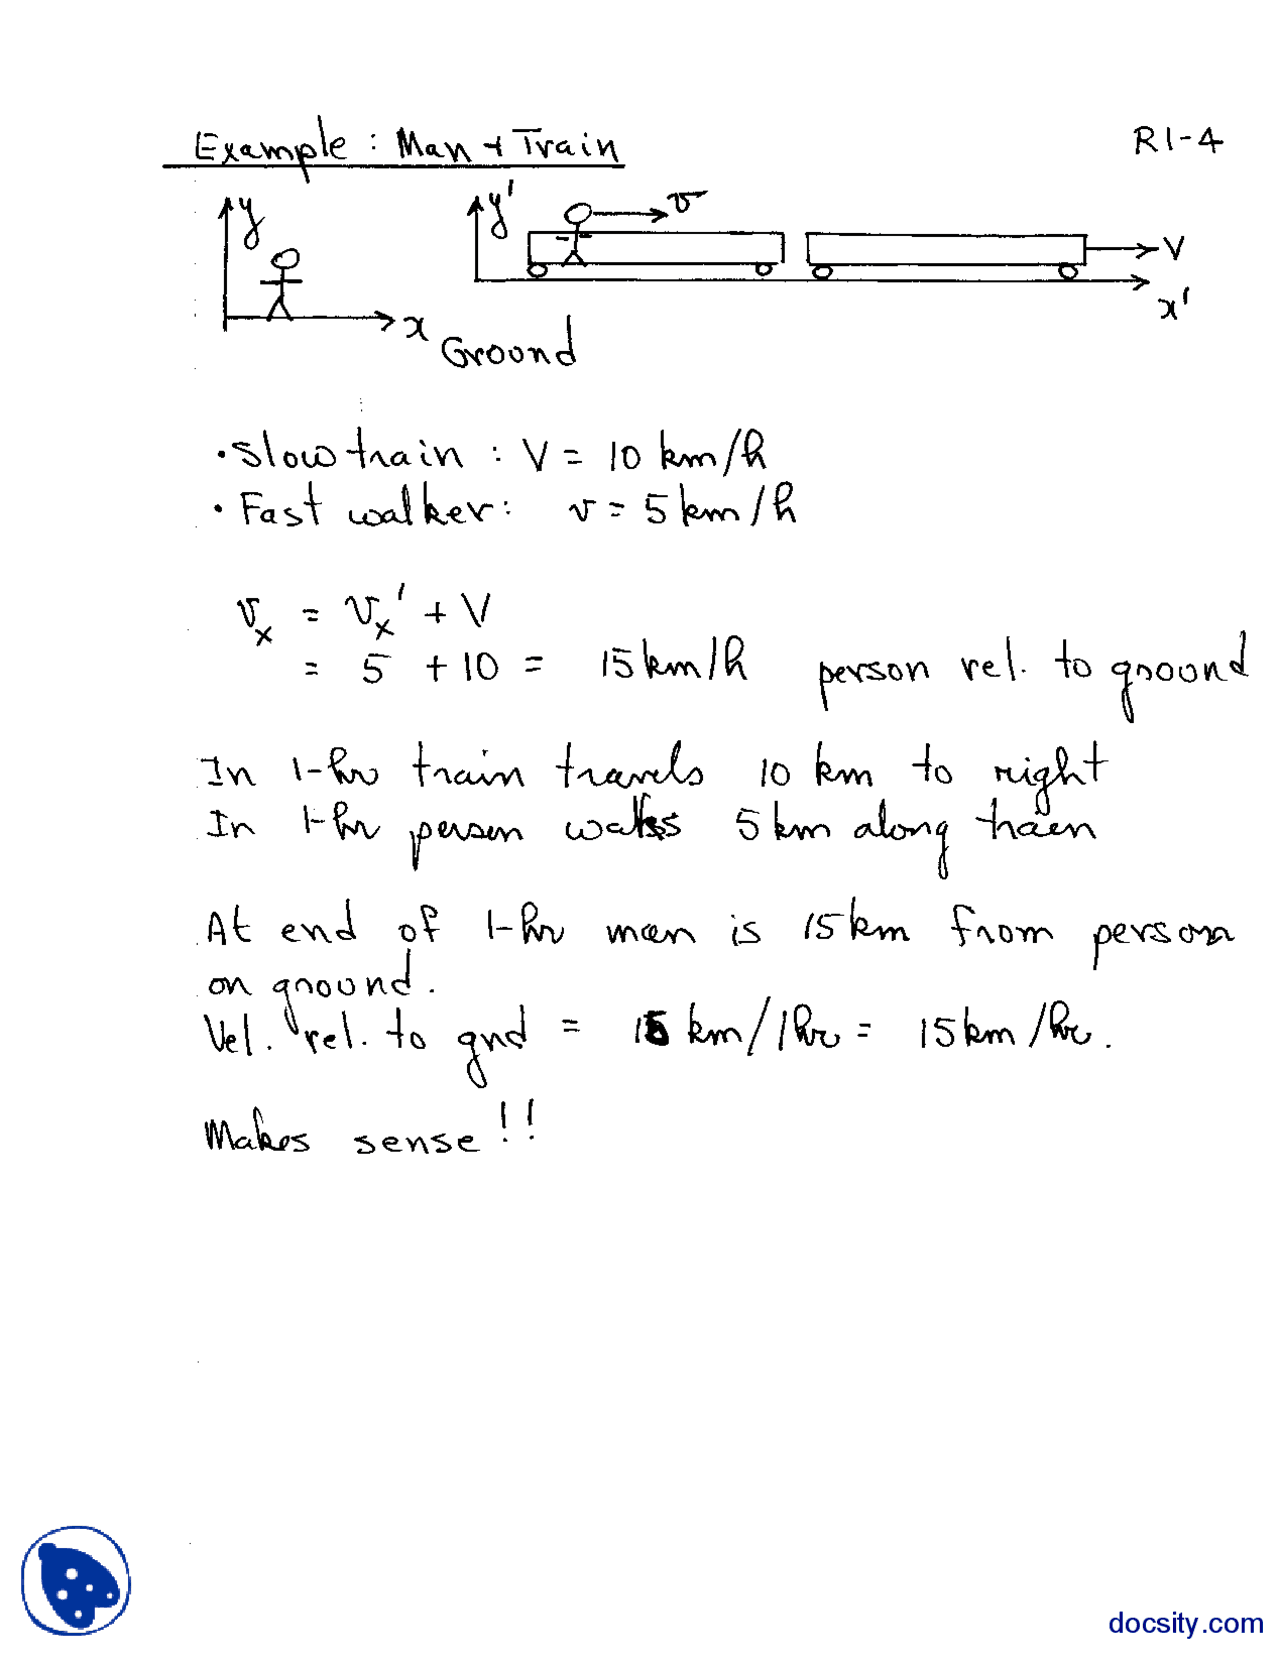 Example : Man + Train
R1-4
y
y'
v
V
x'
x
Ground
• Slow train : V = 10 km/h
• Fast walker : v = 5 km/h
vx = vx' + V
= 5 + 10 = 15 km/h person rel. to ground
In 1-hr train travels 10 km to right
In 1-hr person walks 5 km along train
At end of 1-hr man is 15 km from person
on ground.
Vel. rel. to gnd = 15 km/1hr = 15 km/hr.
Makes sense !!
docsity.com